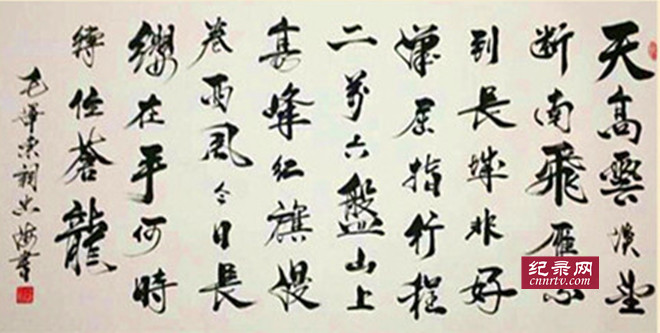 天高雲淡望
断南飛雁不
到長城非好
漢屈指行程
二萬六盤山上
高峰红旗漫
卷西风今日長
缨在手何時
縛住蒼龍
毛澤東詞書
纪录网
cnnrtv.com